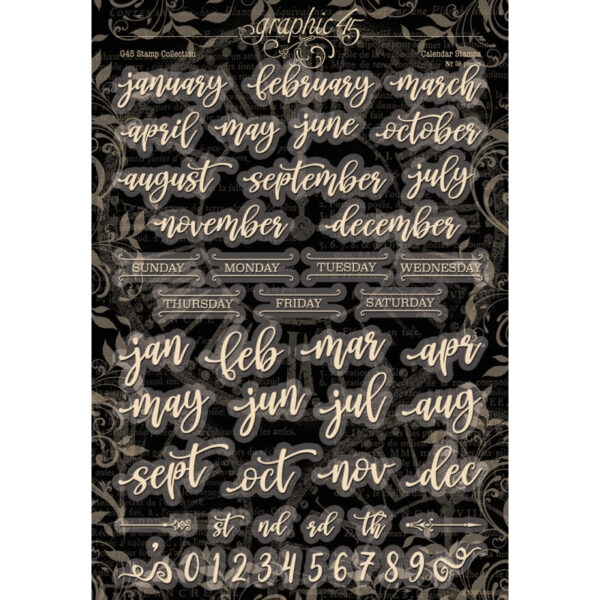 graphic 45
G45 Stamp Collection Calendar Stamps
january february march
april may june october
august september july
november december
SUNDAY MONDAY TUESDAY WEDNESDAY
THURSDAY FRIDAY SATURDAY
jan feb mar apr
may jun jul aug
sept oct nov dec
st nd rd th
0 1 2 3 4 5 6 7 8 9